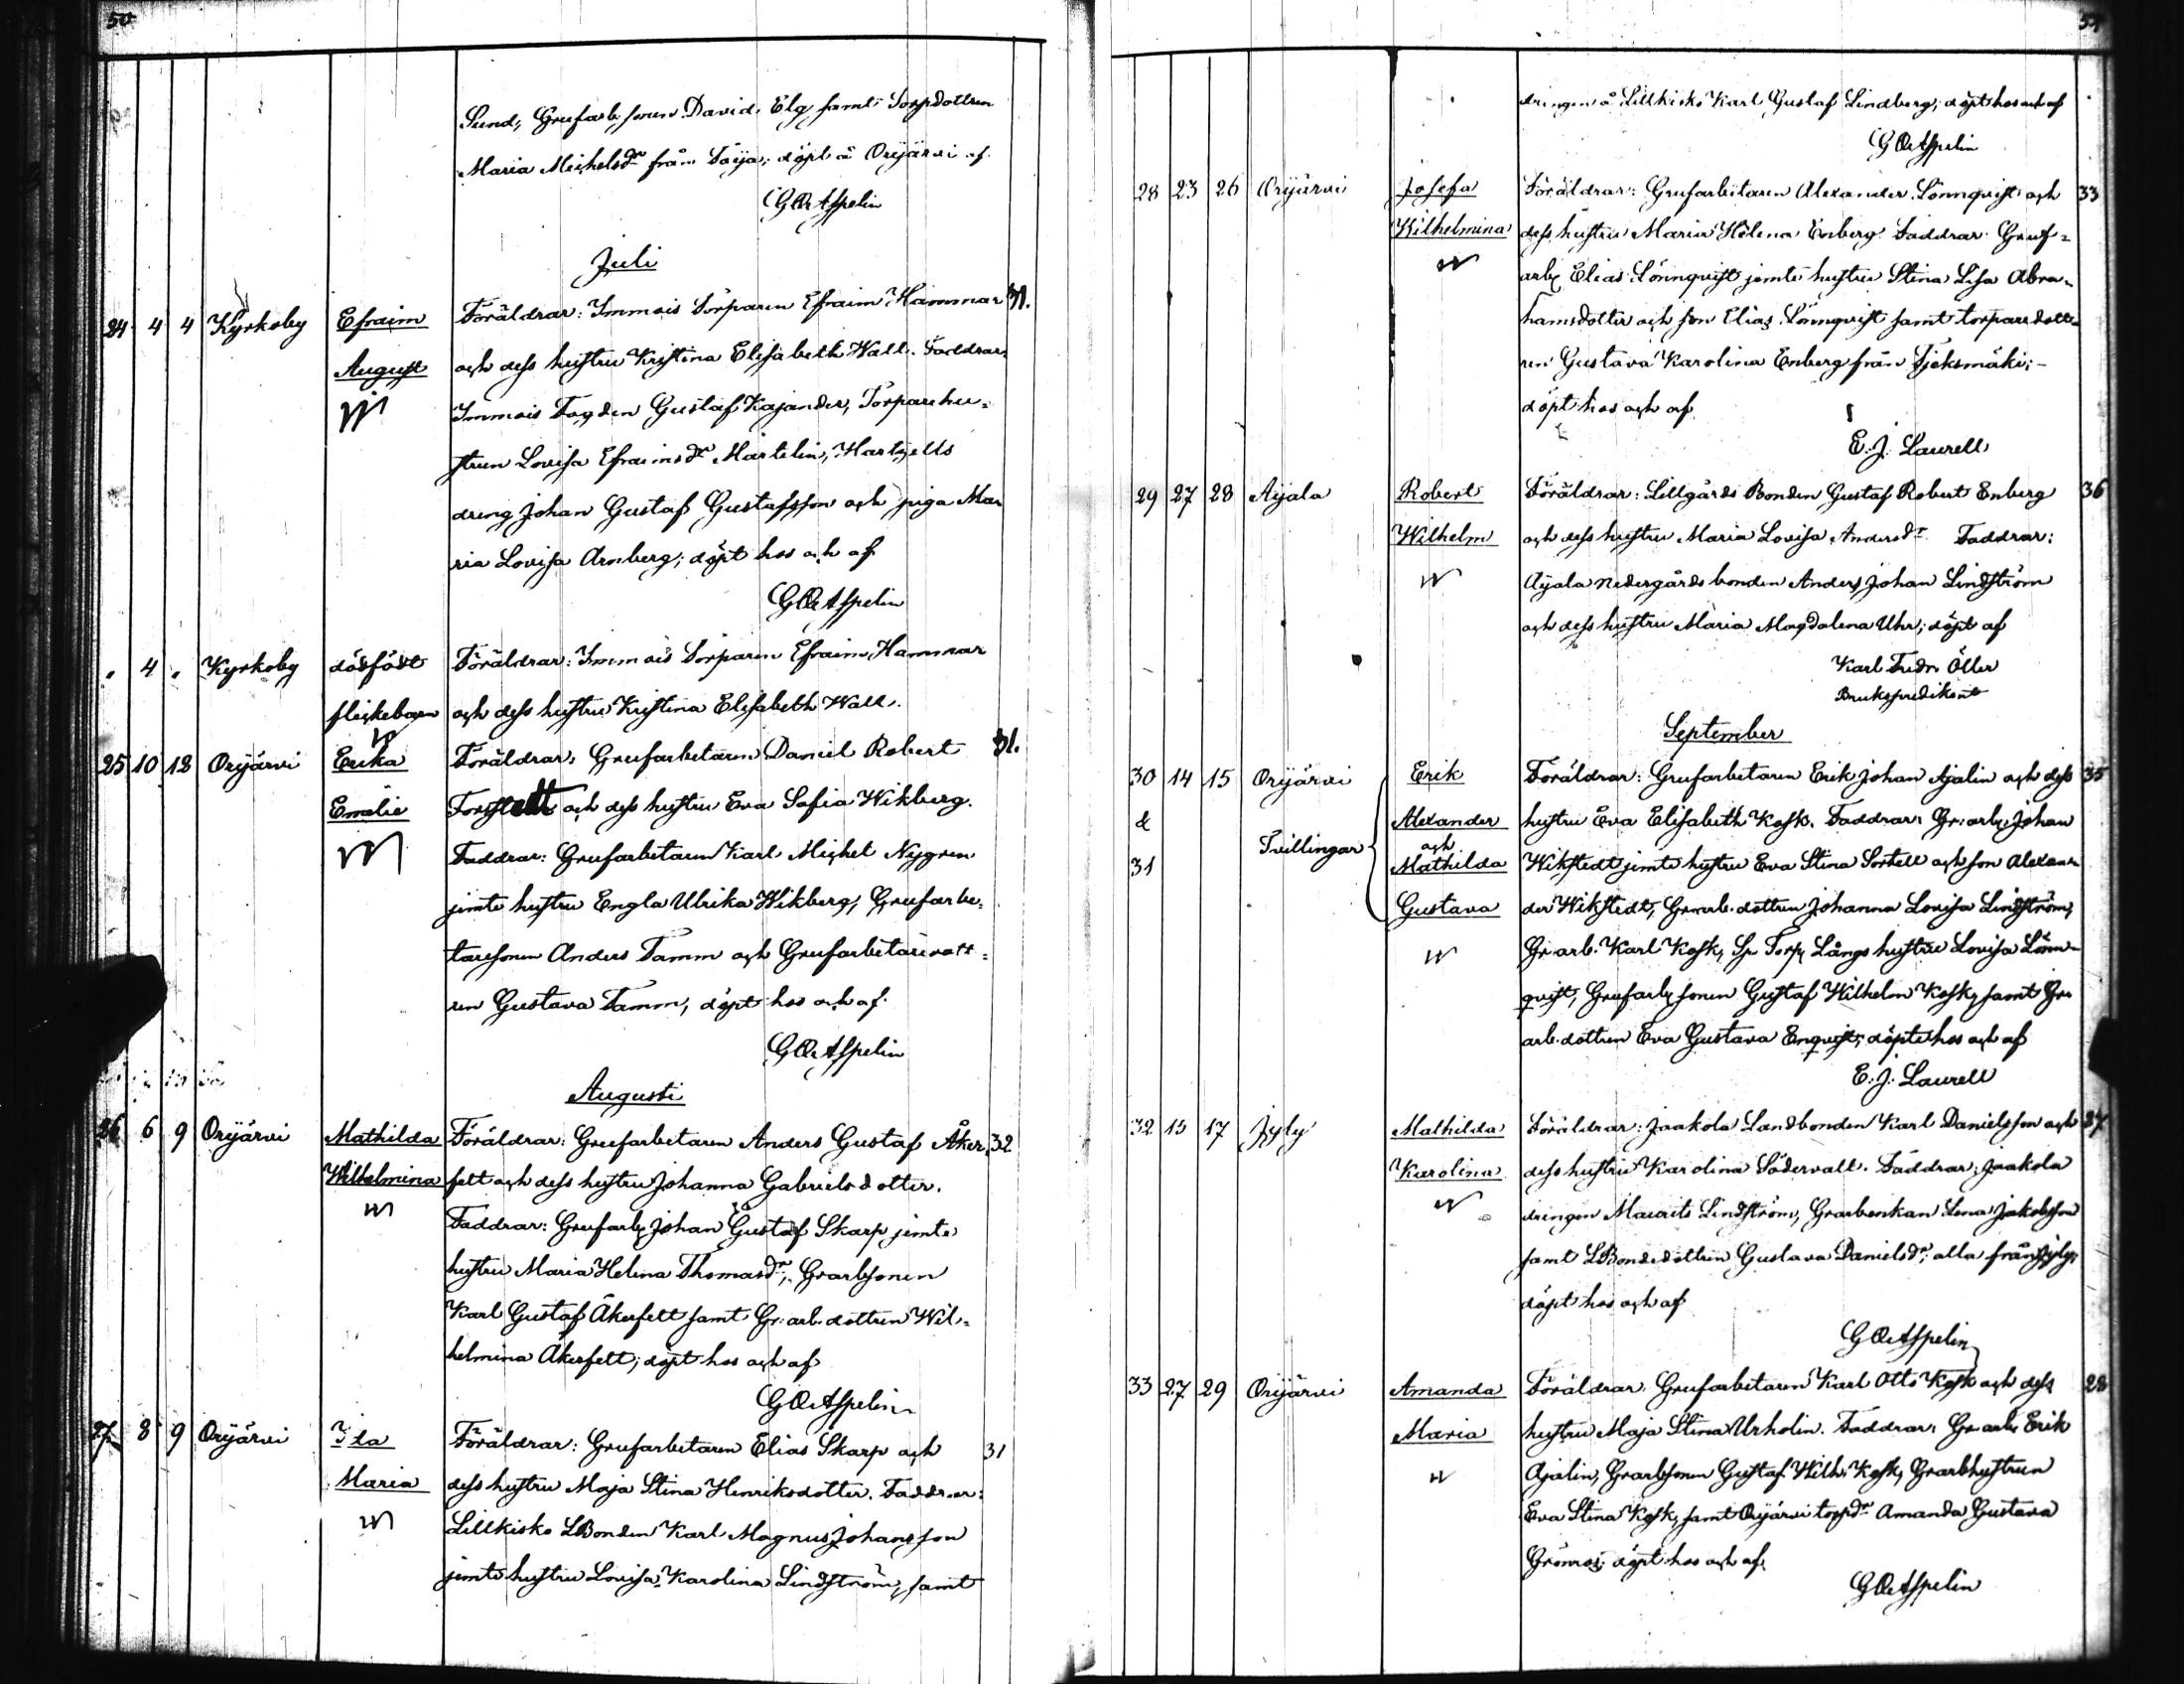 50
Sund, Grufarb. sonen David Elg samt Torpdottren
Maria Michelsdr från Täija; döpt å Orijärvi af
G Æ Aspelin
Juli
24 4 4 Kyrkoby Efraim Föräldrar: Immois Torparen Efraim Hammar 31.
August och dess hustru Kristina Elisabeth Wall. Faddrar:
Immois Fogden Gustaf Kajander, Torparehu-
strun Lovisa Efraimsdr Martelin, Hartzells
dreng Johan Gustaf Gustafsson och piga Ma-
ria Lovisa Arnberg; döpt hos och af
G Æ Aspelin
" 4 " Kyrkoby dödfödt Föräldrar: Immois Torparen Efraim Hammar
flickebarn och dess hustru Kristina Elisabeth Wall.
25 10 12 Orijärvi Erika Föräldrar: Grufarbetaren Daniel Robert 31.
Emelie Forstedt och dess hustru Eva Sofia Wikberg.
Faddrar: Grufarbetaren Karl Michel Nygren
jemte hustru Engla Ulrika Wikberg, Grufarbe-
taresonen Anders Tamm och Grufarbetaredott-
ren Gustava Tamm, döpt hos och af
G Æ Aspelin
Augusti
26 6 9 Orijärvi Mathilda Föräldrar: Grufarbetaren Anders Gustaf Åker- 32
Wilhelmina felt och dess hustru Johanna Gabrielsdotter.
Faddrar: Grufarb. Johan Gustaf Skarp jemte
hustru Maria Helena Thomasdr, Grarbsonen
Karl Gustaf Åkerfelt samt Gr: arb. dottren Wil-
helmina Åkerfelt; döpt hos och af
G Æ Aspelin
27 8 9 Orijärvi Ida Föräldrar: Grufarbetaren Elias Skarp och 31
Maria dess hustru Maja Stina Henriksdotter. Faddrar:
Lillkisko LBonden Karl Magnus Johansson
jemte hustru Lovisa Karolina Lindström, samt
51
drengen å Lillkisko Karl Gustaf Lindberg; döpt hos och af
G Æ Aspelin
28 23 26 Orijärvi Josefa Föräldrar: Grufarbetaren Alexander Lönnqvist och 33
Wilhelmina dess hustru Maria Helena Enberg. Faddrar: Gruf-
arb. Elias Lönnqvist jemte hustru Stina Lisa Abra-
hamsdotter och son Elias Lönnqvist samt torparedott-
ren Gustava Karolina Enberg från Tjeksmäki;
döpt hos och af
E. J. Laurell
29 27 28 Aijala Robert Föräldrar: Lillgårds Bonden Gustaf Robert Enberg 36
Wilhelm och dess hustru Maria Lovisa Andersdr. Faddrar:
Aijala nedergårds bonden Anders Johan Lindström
och dess hustru Maria Magdalena Uhr; döpt af
Karl Fredr. Öller
Brukspredikant
September
30 14 15 Orijärvi Erik Föräldrar: Grufarbetaren Erik Johan Ajalin och dess 35
& Alexander hustru Eva Elisabeth Kosk. Faddrar: Gr: arb. Johan
31 Tvillingar och Mathilda Wikstedt jemte hustru Eva Stina Sortell och son Alexan-
Gustava der Wikstedt, Grarb. dottren Johanna Lovisa Lindström,
Gr arb. Karl Kosk, Sp. Torp. Långs hustru Lovisa Lönn-
qvist, Grufarb. sonen Gustaf Wilhelm Kosk, samt Gr.
arb. dottren Eva Gustava Enqvist; döpte hos och af
E. J. Laurell
32 15 17 Jyly Mathilda Föräldrar: Jaakola Landbonden Karl Danielsson och 37
Karolina dess hustru Karolina Södervall. Faddrar: Jaakola
drengen Maurits Lindström, Grarbenkan Lena Jakobsson
samt LBondedottren Gustava Danielsdr; alla från Jyly;
döpt hos och af
G Æ Aspelin
33 27 29 Orijärvi Amanda Föräldrar: Grufarbetaren Karl Otto Kosk och dess 28
Maria hustru Maja Stina Urholin. Faddrar: Gr. arb. Erik
Ajalin, Grarbsonen Gustaf Wilh. Kosk, Grarbhustrun
Eva Stina Kosk, samt Orijärvi torpdr Amanda Gustava
Grönros; döpt hos och af
G Æ Aspelin